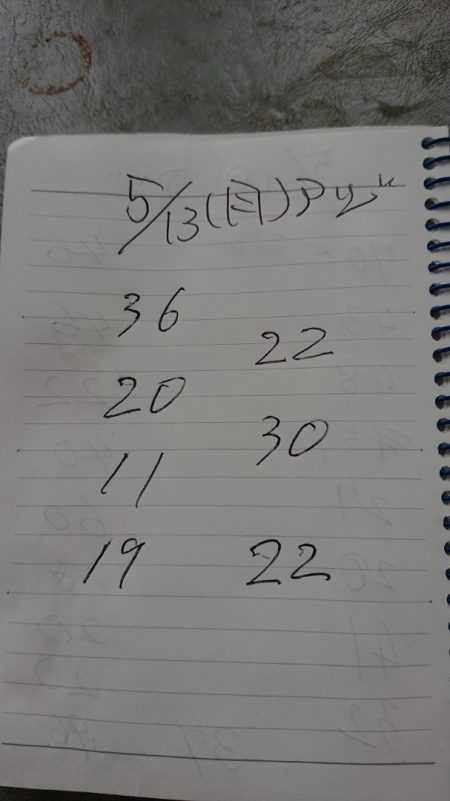 5/13(日)
36
22
20
30
11
19 22